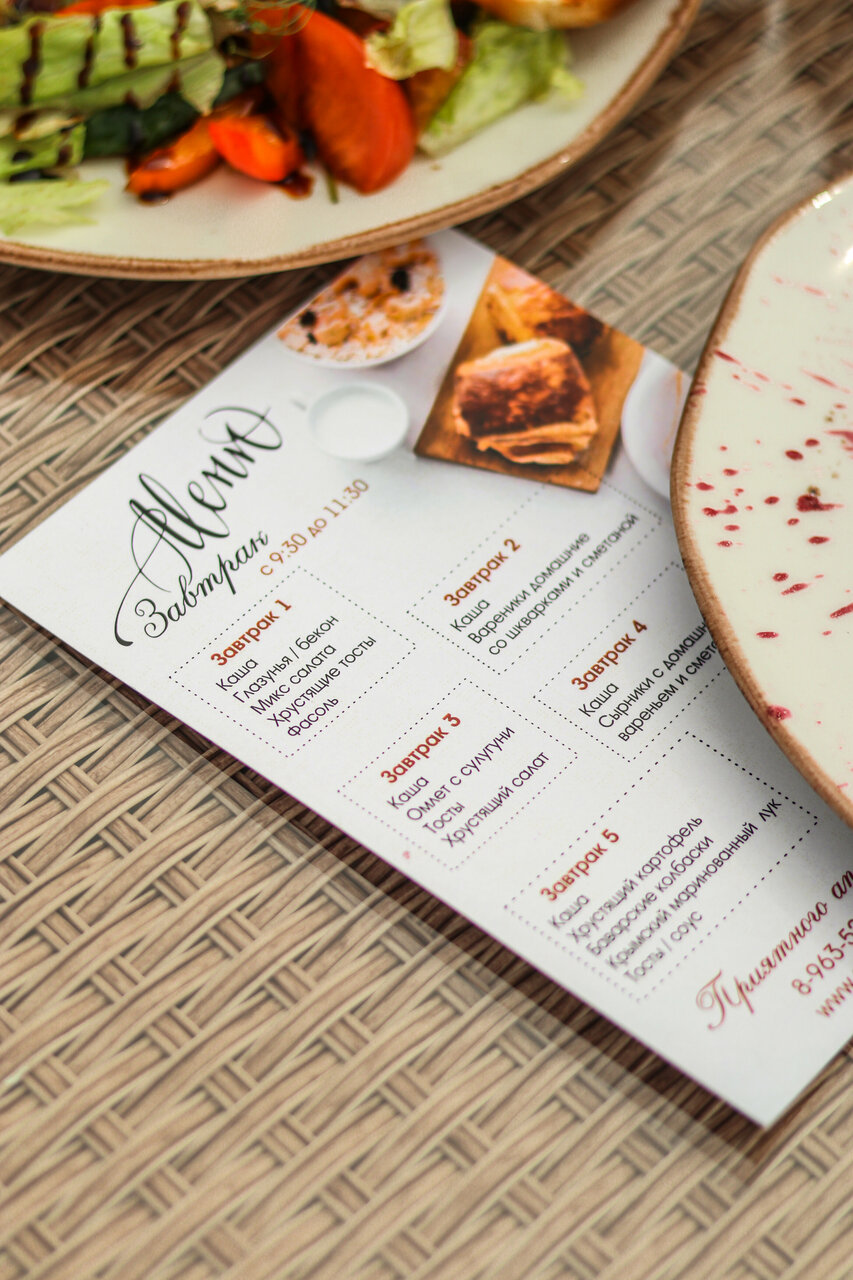 Меню
Завтрак
с 9:30 до 11:30
Завтрак 1
Каша
Глазунья / бекон
Микс салата
Хрустящие тосты
Фасоль
Завтрак 2
Каша
Вареники домашние
со шкварками и сметаной
Завтрак 3
Каша
Омлет с сулугуни
Тосты
Хрустящий салат
Завтрак 4
Каша
Сырники с домашн
вареньем и смета
Завтрак 5
Каша
Хрустящий картофель
Баварские колбаски
Крымский маринованный лук
Тосты / соус
Приятного ап
8-963-5
www.